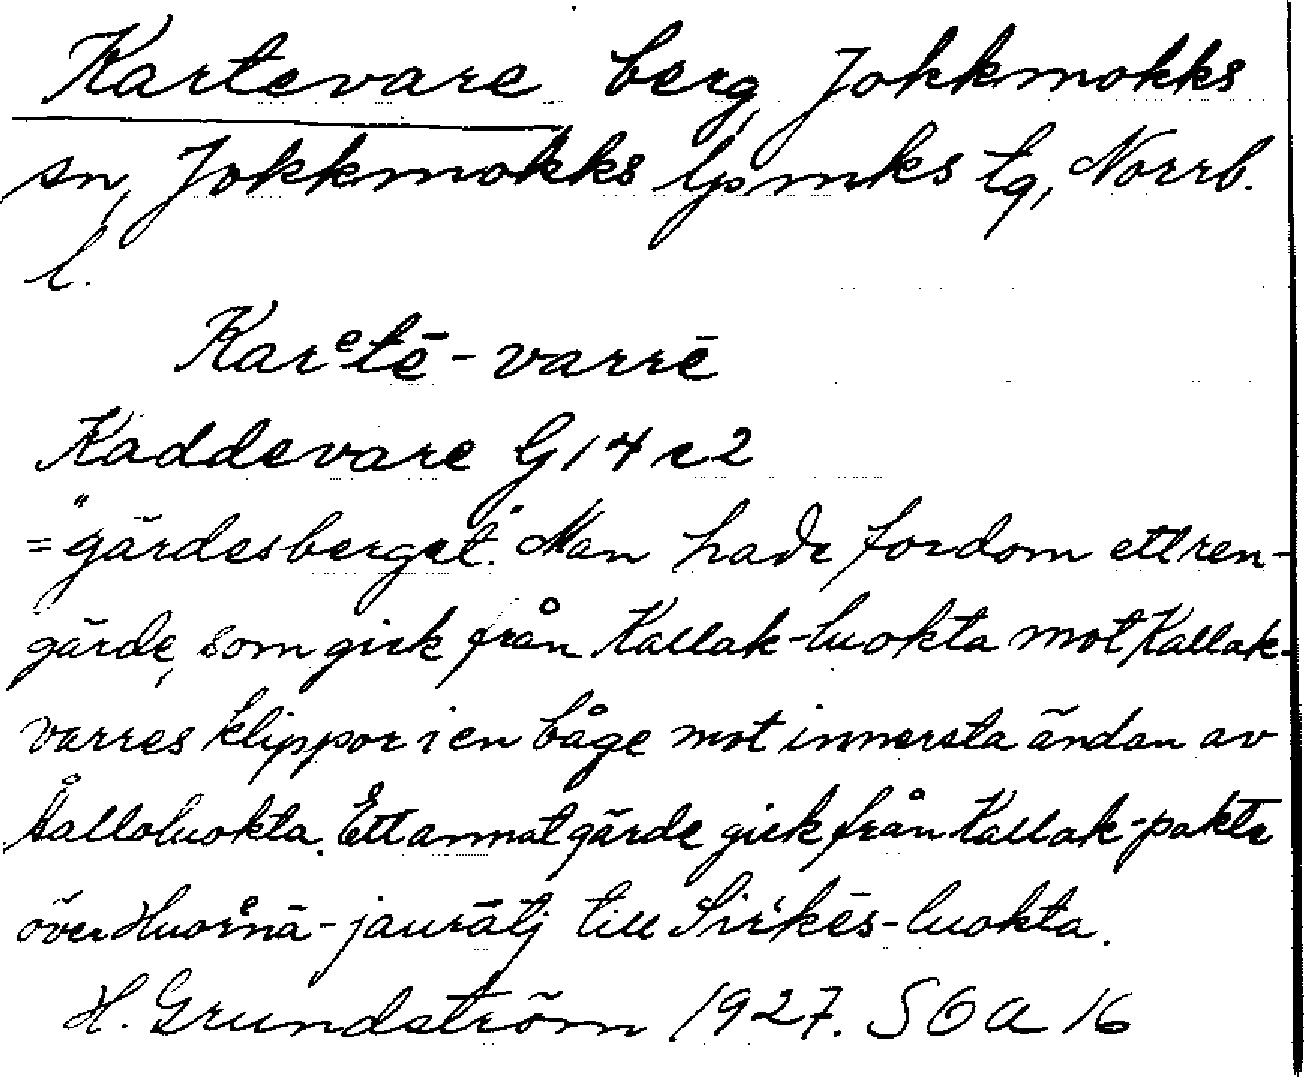 Kartevare berg, Jokkmokks
sn, Jokkmokks lpmks tg, Norrb.
l.
Karᵉtē-varrē
Kaddevare G14c2
="gärdesberget." Man hade fordom ett ren-
gärde, som gick från Kallak-luokta mot Kallak-
varres klippor i en båge mot innersta ändan av
Kålloluokta. Ett annat gärde gick från Kallak-pakte
över Huorᵉnā-jaurātj till Sir'kēs-luokta.
H. Grundström 1927. SOA 16